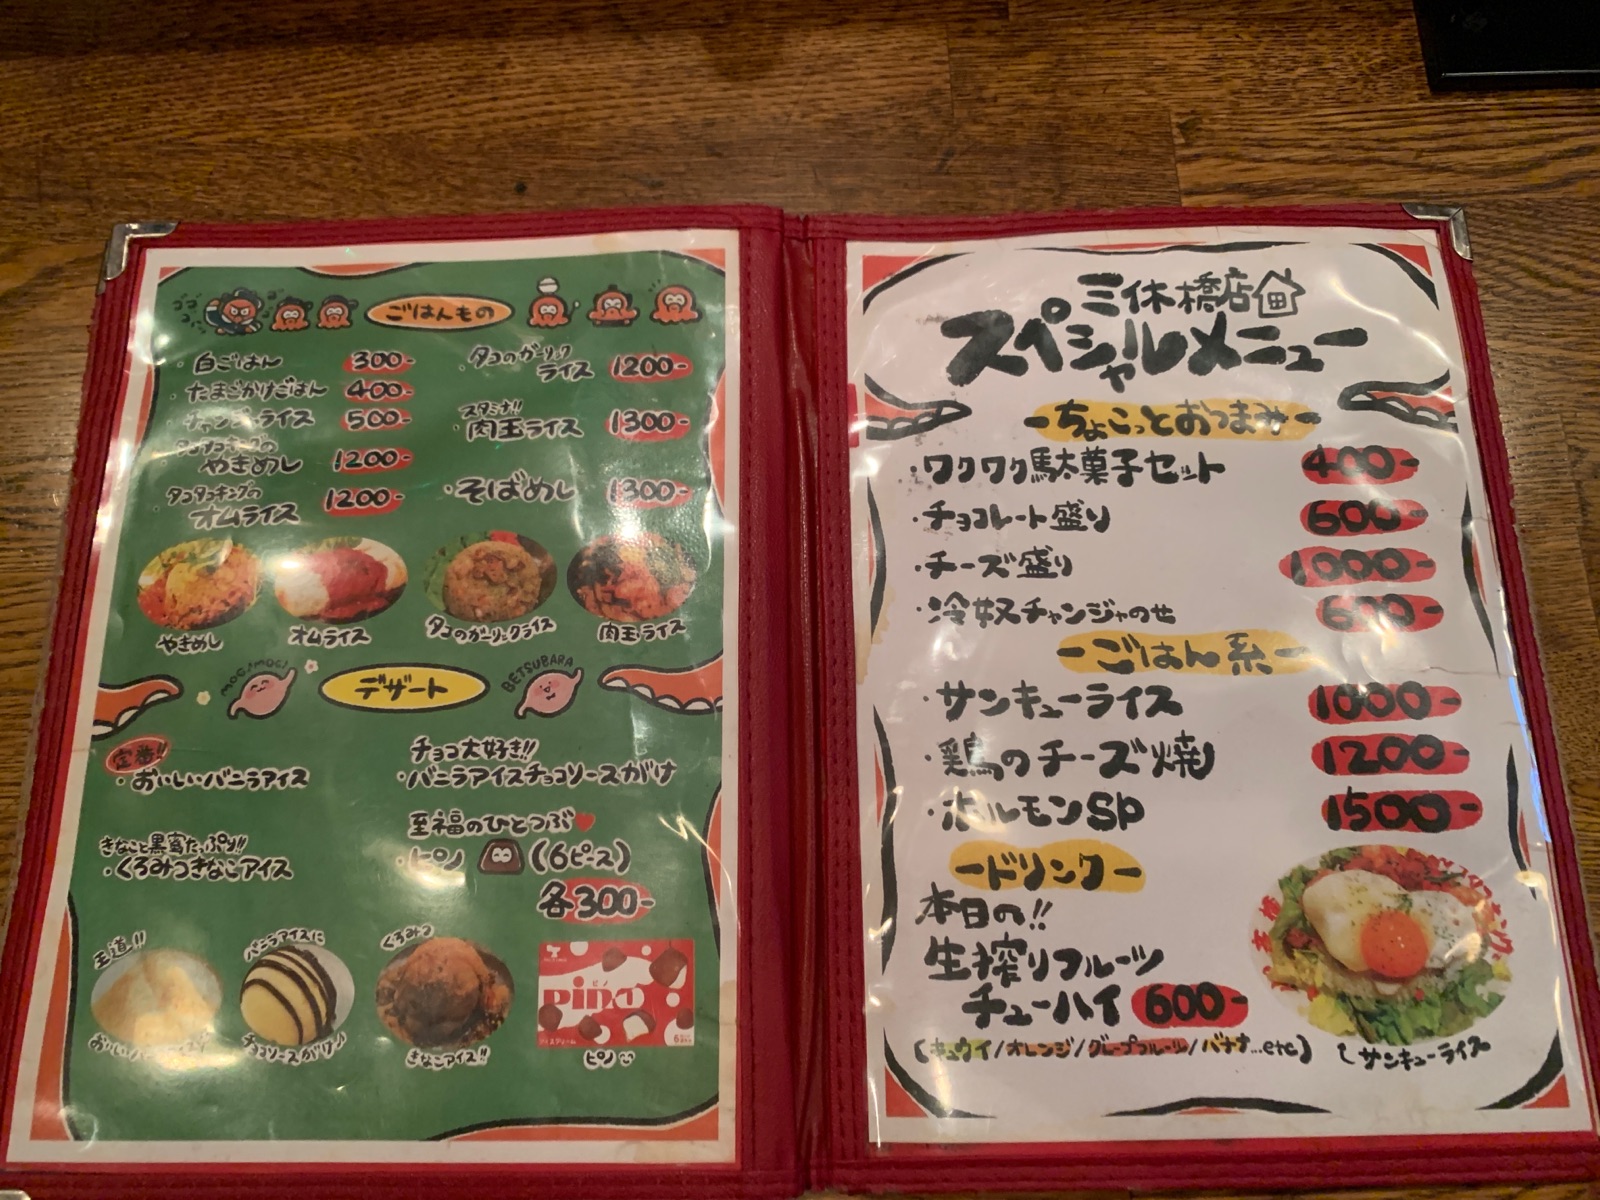 ごはんもの
・白ごはん 300-
・たまごかけごはん 400-
・チャンジャライス 500-
やきめし 1200-
タコタコキングの
オムライス 1200-
・タコのガーリック
ライス 1200-
スタミナ!!
・肉玉ライス 1300-
・そばめし 1300-
やきめし
オムライス
タコのガーリックライス
肉玉ライス
MOGUMOGU
デザート
BETSUBARA
定番!!
・おいしいバニラアイス
チョコ大好き!!
・バニラアイスチョコソースがけ
きなこと黒蜜たっぷり!!
・くろみつきなこアイス
至福のひとつぶ♥
・ピノ (6ピース)
各300-
王道!!
おいしいバニラアイス
バニラアイスに
チョコソースがけ♪
くろみつ
きなこアイス!!
ピノ
pino
ピノ
三休橋店
スペシャルメニュー
-ちょこっとおつまみ-
・ワクワク駄菓子セット 400-
・チョコレート盛り 600-
・チーズ盛り 1000-
・冷奴チャンジャのせ 600-
-ごはん系-
・サンキューライス 1000-
・鶏のチーズ焼 1200-
・ホルモンSP 1500-
-ドリンク-
本日の!!
生搾りフルーツ
チューハイ 600-
(キュウイ/オレンジ/グレープフルーツ/バナナ...etc)
サンキューライス